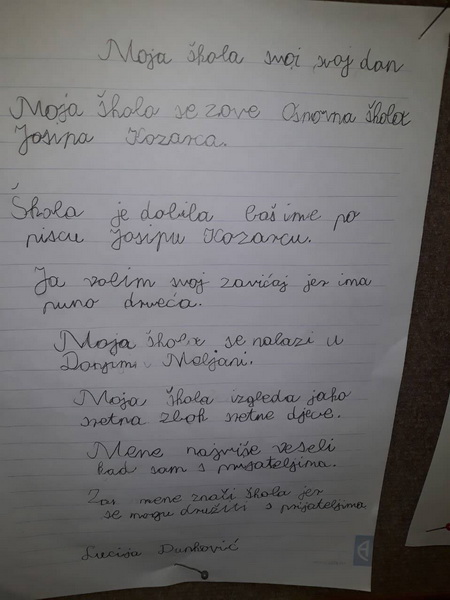 Moja škola svoj svoj dan
Moja škola se zove Osnovna škola
Josipa Kozarca.
Škola je dobila baš ime po
piscu Josipu Kozarcu.
Ja volim svoj zavičaj jer ima
puno drveća.
Moja škola se nalazi u
Donjim Meljani.
Moja škola izgleda jako
sretna zboh sretne djece.
Mene najviše veseli
kad sam s prijateljima.
Zas mene znači škola jer
se mogu družiti s prijateljima
Lucija Danković